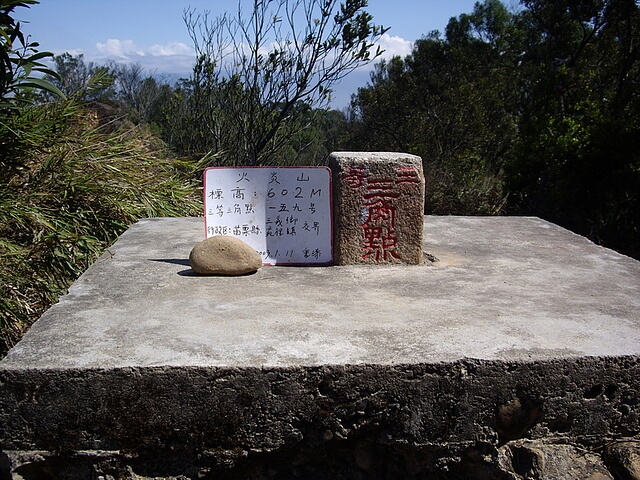 火炎山
標高:602M
三等三角點 一五九号
行政區:苗栗縣 三義鄉 苑裡鎮 交界
1.11
二等
三角點